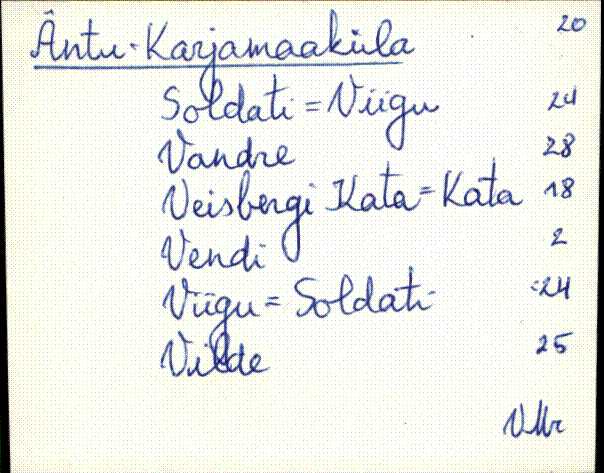 Äntu-Karjamaaküla 20
Soldati = Viigu 24
Vandre 28
Veisbergi Kata = Kata 18
Vendi 2
Viigu = Soldati 24
Vilde 25
VMr